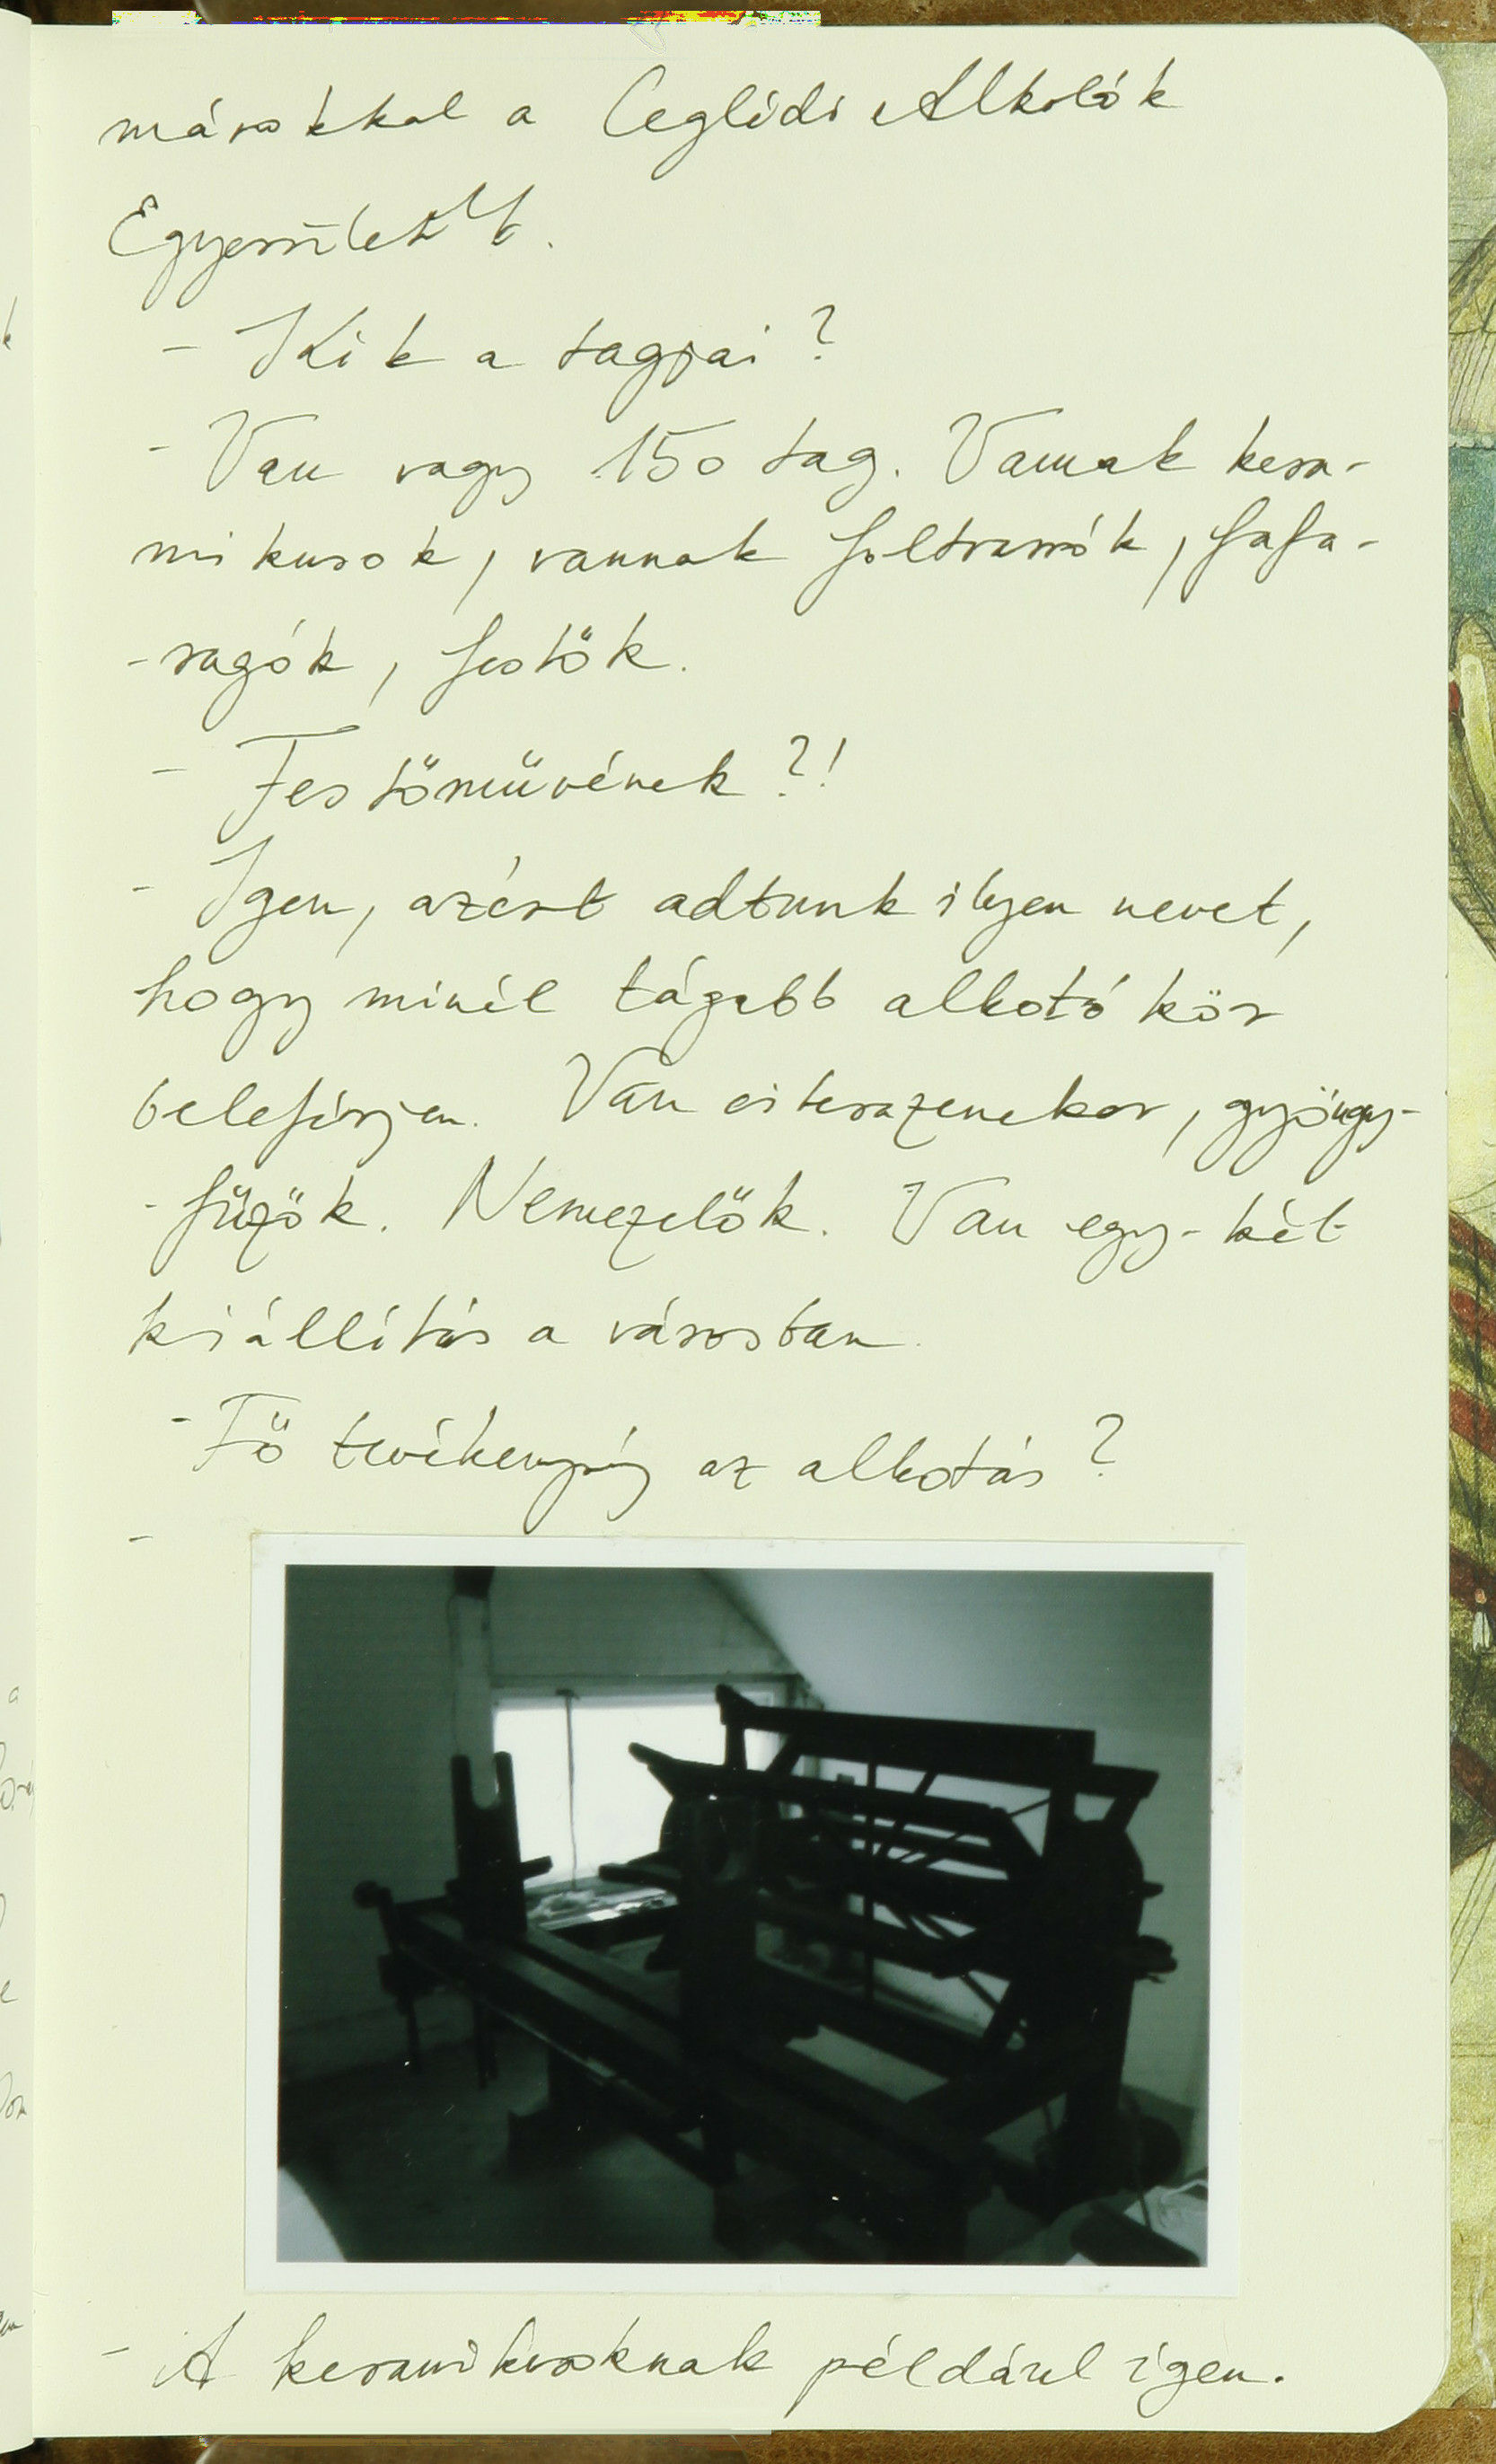 másokkal a Ceglédi Alkotók
Egyesületét.
- Kik a tagjai?
- Van vagy 150 tag. Vannak kera-
mikusok, vannak foltvarrók, fafa-
-ragók, festők.
- Festőművének?!
- Igen, azért adtunk ilyen nevet,
hogy minél tágabb alkotó kör
beleférjen. Van citerazenekar, gyöngy-
-fűzők. Nemezelők. Van egy-két
kiállítás a városban.
- Fő tevékenység az alkotás?
-
- A keramikusoknak például igen.